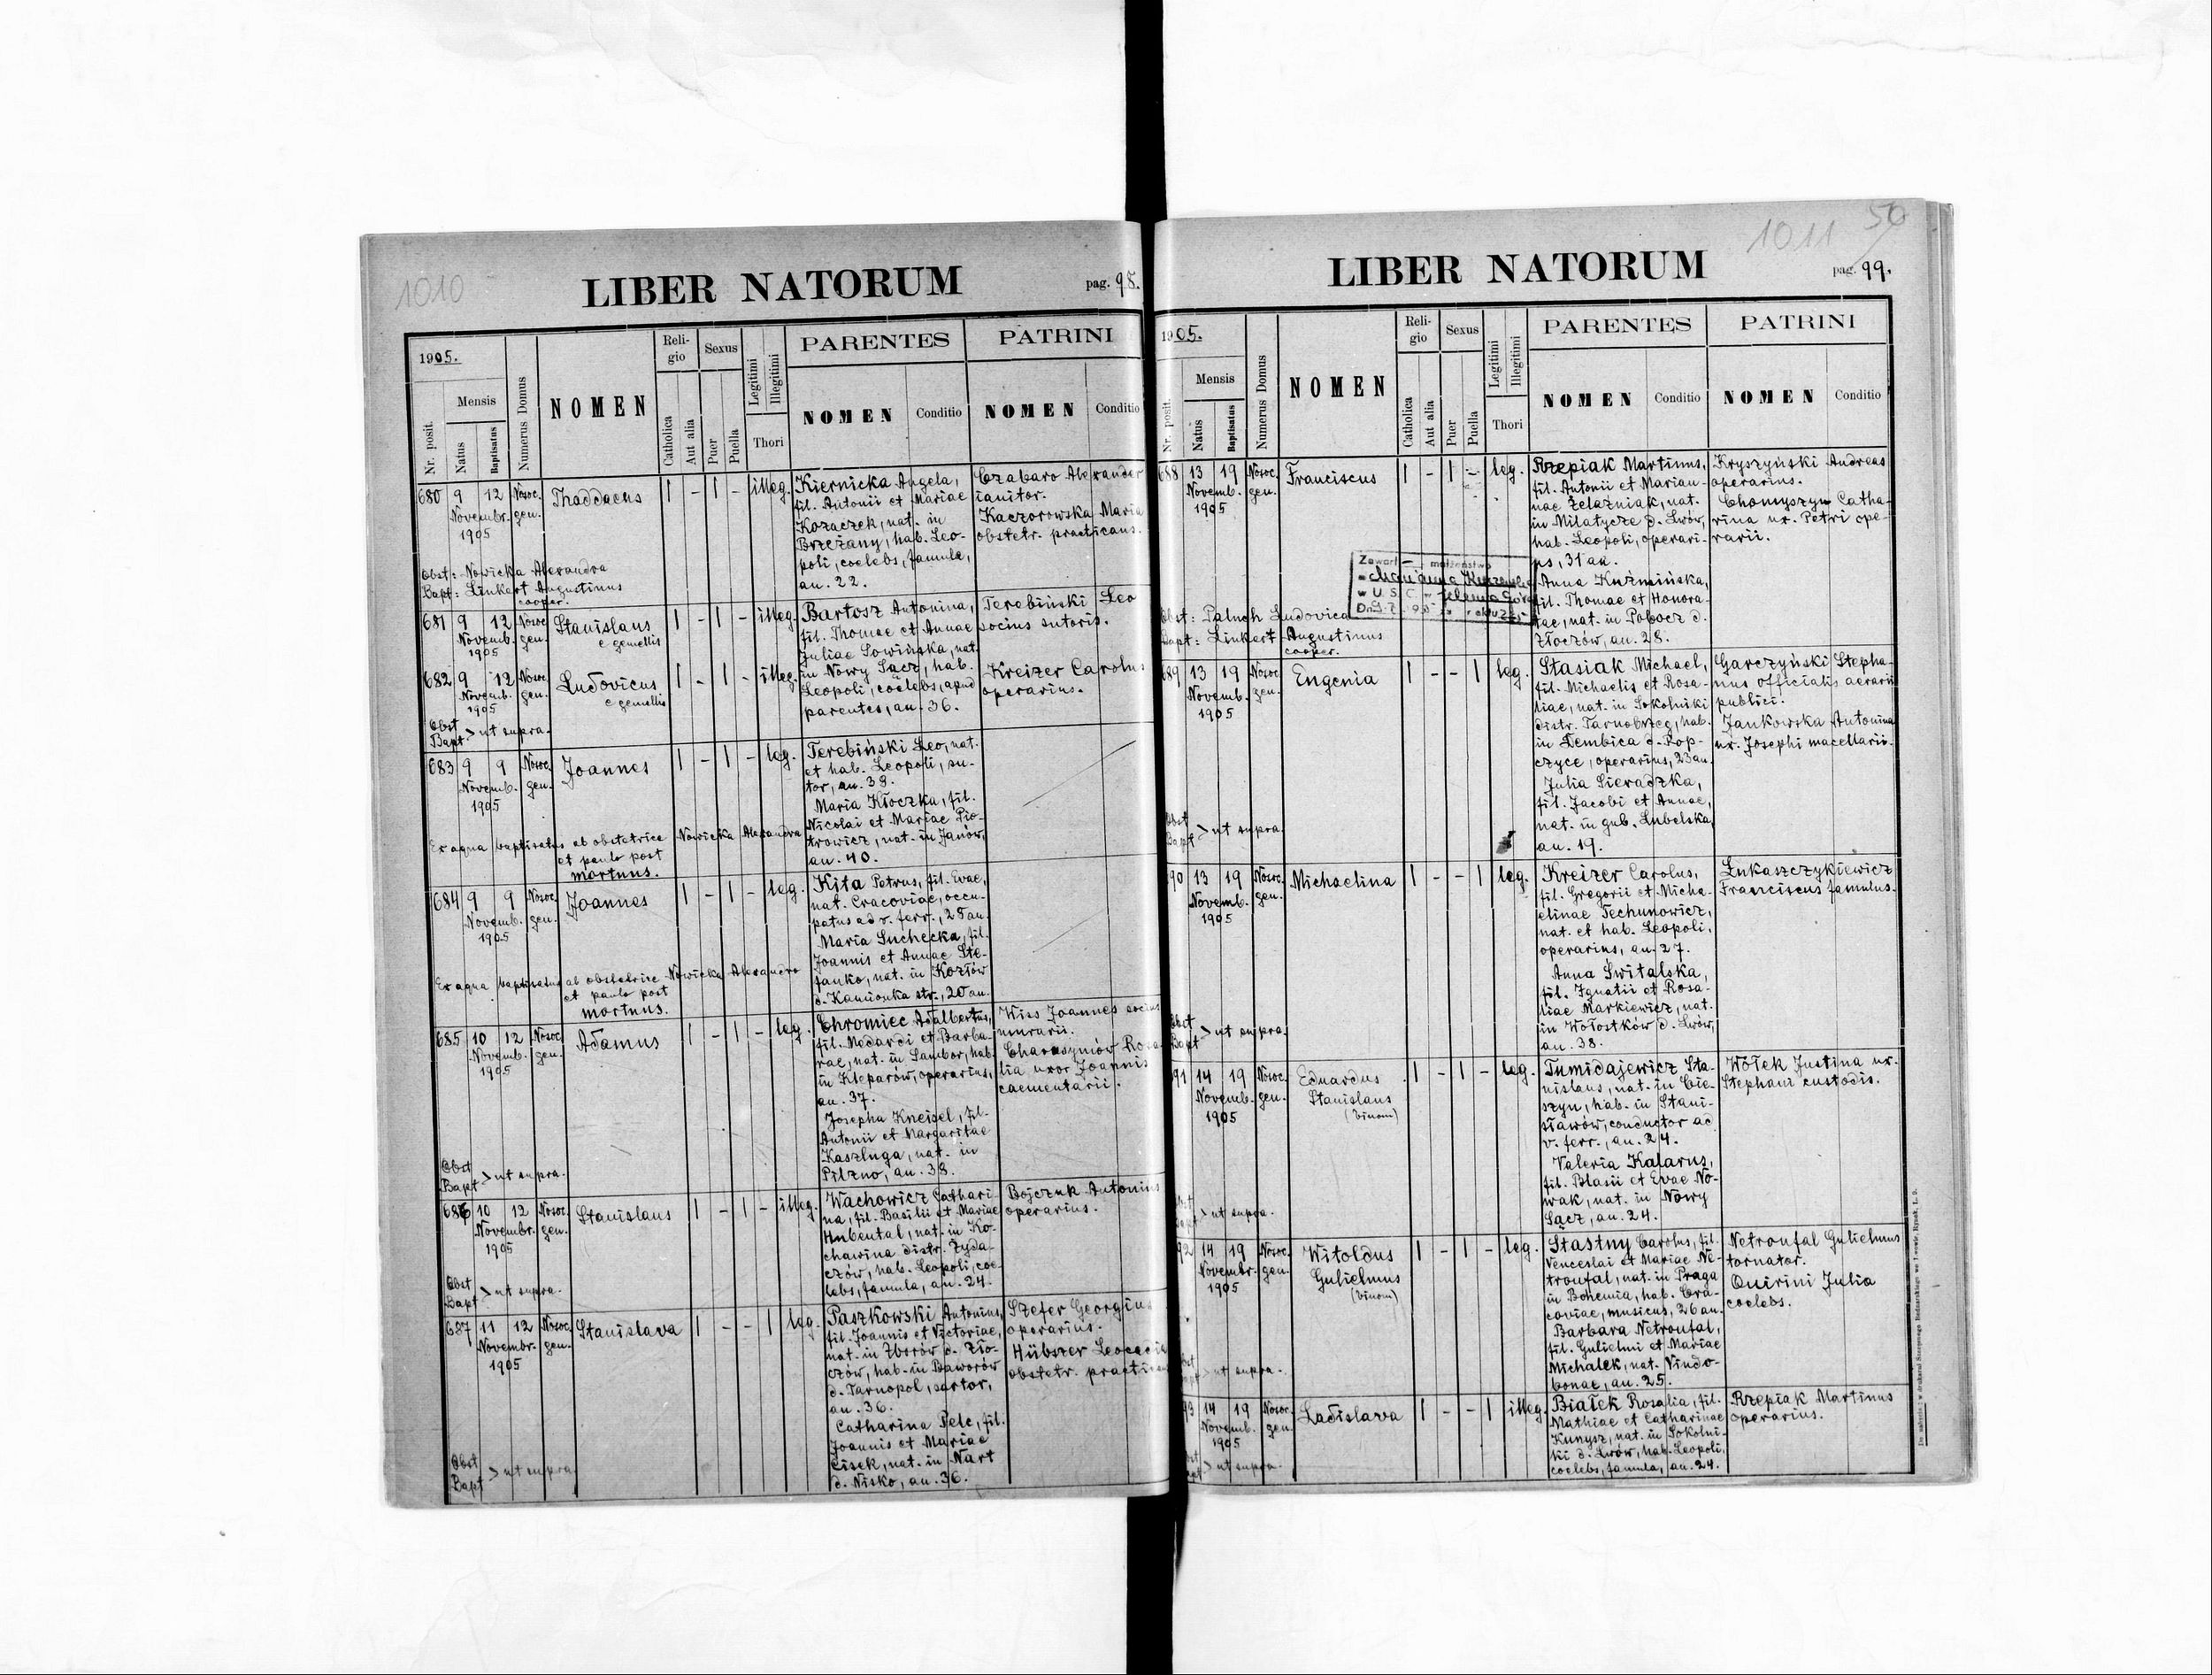 1010
LIBER NATORUM
pag. 98.
1905.
Nr. posit.
Mensis
Natus
Baptisatus
Numerus Domus
NOMEN
Religio
Catholica
Aut alia
Sexus
Puer
Puella
Legitimi
Illegitimi
Thori
PARENTES
NOMEN
Conditio
PATRINI
NOMEN
Conditio
680 9 12 Nosoc. gen.
Novembr.
1905
Thaddaeus
1 - 1 - illeg.
Kiernicka Angela,
fil. Antonii et Mariae
Kozaczek, nat. in
Brzeżany, hab. Leo-
poli, coelebs, famula,
an. 22.
Czabaro Alexander
ianitor.
Kaczorowska Maria
obstetr. practicans.
Obst: Nowicka Alexandra
Bapt: Linkert Augustinus
cooper.
681 9 12 Nosoc. gen.
Novemb.
1905
Stanislaus
e gemellis
1 - 1 - illeg.
Bartosz Antonina,
fil. Thomae et Annae
Juliae Sowińska, nat.
in Nowy Sącz, hab.
Leopoli, coelebs, apud
parentes, an. 36.
Terebiński Leo
socius sutoris.
682 9 12 Nosoc. gen.
Novemb.
1905
Ludovicus
e gemellis
1 - 1 - illeg.
Kreizer Carolus
operarius.
Obst
Bapt > ut supra.
683 9 9 Nosoc. gen.
Novemb.
1905
Joannes
1 - 1 - leg.
Terebiński Leo, nat.
et hab. Leopoli, su-
tor, an. 38.
Maria Kłoczka, fil.
Nicolai et Mariae Pio-
trowicz, nat. in Janów,
an. 40.
Ex aqua baptisatus ab obstetrice Nowicka Alexandra
et paulo post
mortuus.
684 9 9 Nosoc. gen.
Novemb.
1905
Joannes
1 - 1 - leg.
Kita Petrus, fil. Evae,
nat. Cracoviae, occu-
patus ad v. ferr., 25 an.
Maria Suchecka, fil.
Joannis et Annae Ste-
fanko, nat. in Kozłów
d. Kamionka str., 20 an.
Ex aqua baptisatus ab obstetrice Nowicka Alexandra
et paulo post
mortuus.
685 10 12 Nosoc. gen.
Novemb.
1905
Adamus
1 - 1 - leg.
Chromiec Adalbertus,
fil. Medardi et Barba-
rae, nat. in Sambor, hab.
in Kleparów, operarius,
an. 37.
Josepha Kneisel, fil.
Antonii et Margaritae
Kaszluga, nat. in
Pilzno, an. 38.
Kiss Joannes socius
murarii.
Charasymów Rosa-
lia uxor Joannis
caementarii.
Obst
Bapt > ut supra.
686 10 12 Nosoc. gen.
Novembr.
1905
Stanislaus
1 - 1 - illeg.
Wachowicz Cathari-
na, fil. Basilii et Mariae
Hubental, nat. in Ko-
chawina distr. Żyda-
czów, hab. Leopoli, coe-
lebs, famula, an. 24.
Bojczuk Antonius
operarius.
Obst
Bapt > ut supra.
687 11 12 Nosoc. gen.
Novembr.
1905
Stanislava
1 - - 1 leg.
Paszkowski Antonius,
fil. Joannis et Victoriae,
nat. in Zborów d. Zło-
czów, hab. in Baworów
d. Tarnopol, sartor,
an. 36.
Catharina Pelc, fil.
Joannis et Mariae
Cisek, nat. in Nart
d. Nisko, an. 36.
Szefer Georgius
operarius.
Hübszer Leocadia
obstetr.
Obst
Bapt > ut supra.
1011 50
LIBER NATORUM
pag. 99.
1905.
Nr. posit.
Mensis
Natus
Baptisatus
Numerus Domus
NOMEN
Religio
Catholica
Aut alia
Sexus
Puer
Puella
Legitimi
Illegitimi
Thori
PARENTES
NOMEN
Conditio
PATRINI
NOMEN
Conditio
688 13 19 Nosoc. gen.
Novemb.
1905
Franciscus
1 - 1 - leg.
Rzepiak Martinus,
fil. Antonii et Marian-
nae Żelaźniak, nat.
in Milatycze d. Lwów,
hab. Leopoli, operari-
us, 31 an.
Anna Kuźmińska,
fil. Thomae et Honora-
tae, nat. in Pobocz d.
Złoczów, an. 28.
Kryszyński Andreas
operarius.
Chomyszyn Catha-
rina ux. Petri ope-
rarii.
Zawarł małżeństwo
w U. S. C. w
Obst: Paluch Ludovica
Bapt: Linkert Augustinus
cooper.
689 13 19 Nosoc. gen.
Novemb.
1905
Eugenia
1 - - 1 leg.
Stasiak Michael,
fil. Michaelis et Rosa-
liae, nat. in Sokolniki
distr. Tarnobrzeg, hab.
in Dembica d. Rop-
czyce, operarius, 23 an.
Julia Sieradzka,
fil. Jacobi et Annae,
nat. in gub. Lubelska,
an. 19.
Garczyński Stepha-
nus officialis aerarii
publici.
Jankowska Antonina
ux. Josephi macellarii.
Obst
Bapt > ut supra.
690 13 19 Nosoc. gen.
Novemb.
1905
Michaelina
1 - - 1 leg.
Kreizer Carolus,
fil. Gregorii et Micha-
elinae Techunowicz,
nat. et hab. Leopoli,
operarius, an. 27.
Anna Świtalska,
fil. Ignatii et Rosa-
liae Markiewicz, nat.
in Wołostków d. Lwów,
an. 38.
Łukaszczykiewicz
Franciscus famulus.
Obst
Bapt > ut supra.
691 14 19 Nosoc. gen.
Novemb.
1905
Eduardus
Stanislaus
(binom)
1 - 1 - leg.
Tumidajewicz Sta-
nislaus, nat. in Cie-
szyn, hab. in Stani-
sławów, conductor ad
v. ferr., an. 24.
Valeria Kalarus,
fil. Blasii et Evae No-
wak, nat. in Nowy
Sącz, an. 24.
Wołek Justina ux.
Stephani custodis.
Obst
Bapt > ut supra.
692 14 19 Nosoc. gen.
Novembr.
1905
Witoldus
Gulielmus
(binom)
1 - 1 - leg.
Stastny Carolus, fil.
Venceslai et Mariae Ne-
troufal, nat. in Praga
in Bohemia, hab. Cra-
coviae, musicus, 26 an.
Barbara Netroufal,
fil. Gulielmi et Mariae
Michalek, nat. Vindo-
bonae, an. 25.
Netroufal Gulielmus
tornator.
Quirini Julia
coelebs.
Obst
Bapt > ut supra.
693 14 19 Nosoc. gen.
Novemb.
1905
Ladislava
1 - - 1 illeg.
Białek Rosalia, fil.
Mathiae et Catharinae
Kunysz, nat. in Sokolni-
ki d. Lwów, hab. Leopoli,
coelebs, famula, an. 24.
Rzepiak Martinus
operarius.
Obst
Bapt > ut supra.